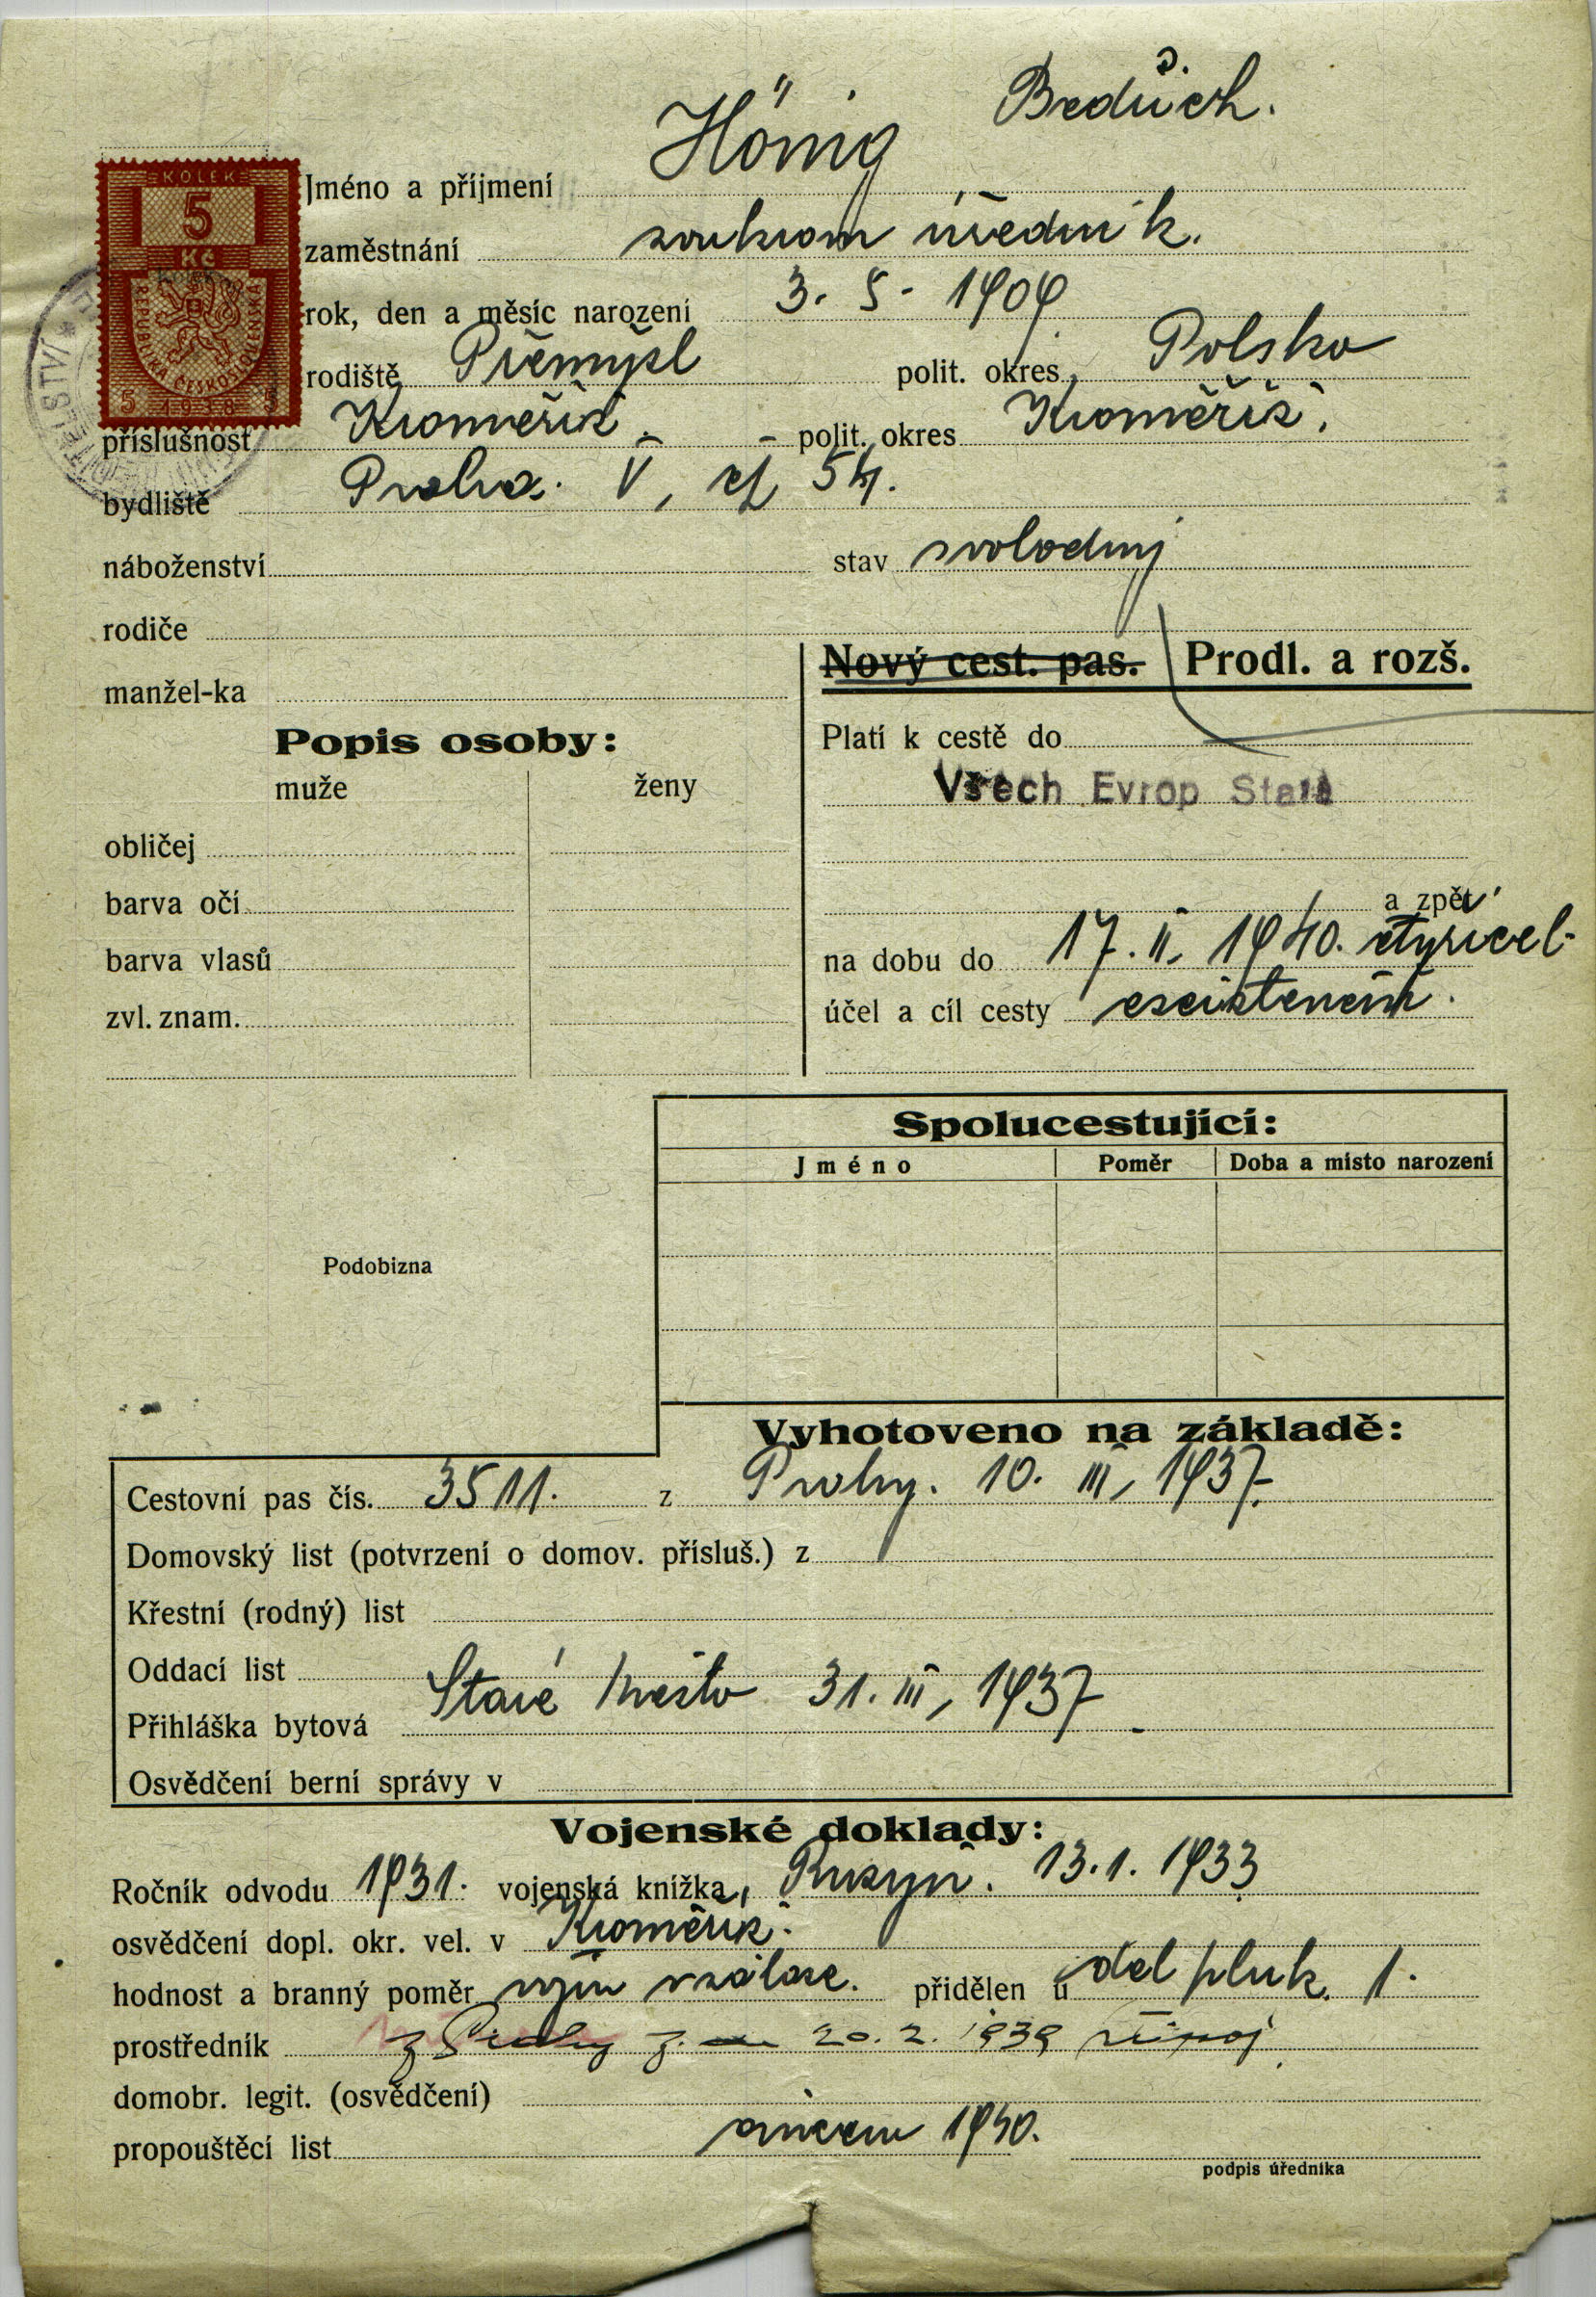 Hönig Bedřich.
KOLEK
5
Kč
REPUBLIKA ČESKOSLOVENSKÁ
5 1938 5
Jméno a příjmení
zaměstnání soukrom úředník.
rok, den a měsíc narození 3. 5. 1909
rodiště Přemyšl polit. okres Polsko
příslušnost Kroměříž. polit. okres Kroměříž.
bydliště Praha. V, čp 54.
náboženství stav svobodný
rodiče
manžel-ka
Nový cest. pas. Prodl. a rozš.
Popis osoby:
muže ženy
obličej
barva očí
barva vlasů
zvl. znam.
Platí k cestě do
Všech Evrop Států
a zpět
na dobu do 17. II. 1940. čtyřicet
účel a cíl cesty
Spolucestující:
Jméno Poměr Doba a místo narození
Podobizna
Vyhotoveno na základě:
Cestovní pas čís. 3511. z Prahy. 10. III, 1937.
Domovský list (potvrzení o domov. přísluš.) z
Křestní (rodný) list
Oddací list
Přihláška bytová Staré Město 31. III, 1937
Osvědčení berní správy v
Vojenské doklady:
Ročník odvodu 1931. vojenská knížka, Ruzyň. 13. 1. 1933
osvědčení dopl. okr. vel. v Kroměříž.
hodnost a branný poměr vojín v záloze. přidělen u děl pluk. 1.
prostředník z Prahy z 20. 2. 1939
domobr. legit. (osvědčení)
propouštěcí list 1940.
podpis úředníka